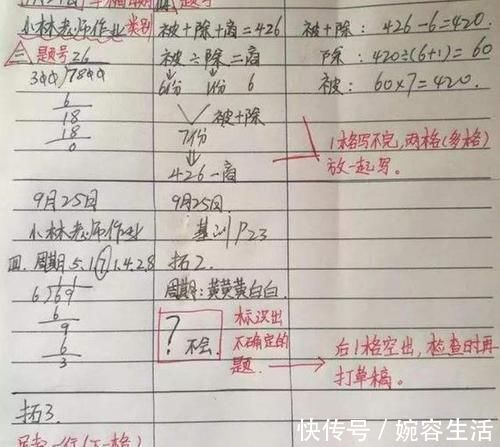 小林老师作业 类别
被+除+商=426
被+除: 426-6=420.
三 题号 26
300)7800
6
18
18
0
被÷除=商
6份 1份 6
被+除
7份
426-商
除: 420÷(6+1)=60
被: 60×7=420.
1格写不完,两格(多格)
放一起写。
9月25日
小林老师作业
9月25日.
基训P23
四. 周期5.1①1.4.2.8
6)69
6
9
6
3
拓2.
周期:黄黄黄白白.
? 不会.
标识出
不确定的
题.
后1格空出,检查时再
打草稿。
拓3.
快传号/婉容生活